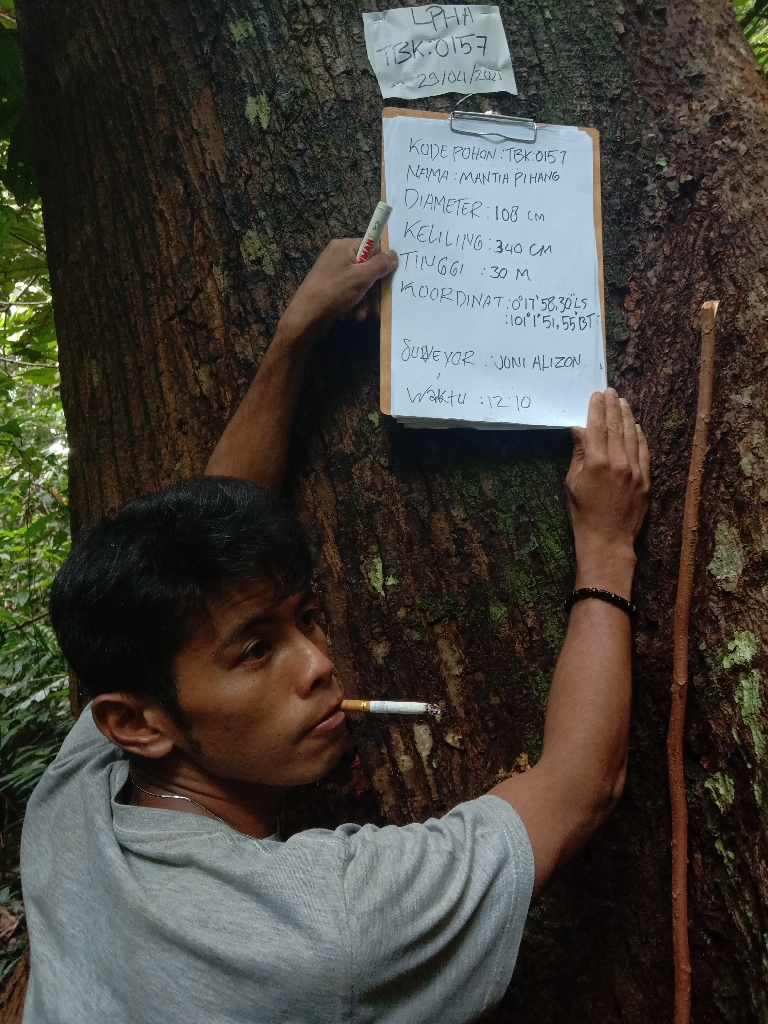 LPHA
TBK:0157
29/04/2021
KODE POHON : TBK:0157
NAMA : MANTIA PIHANG
DIAMETER : 108 CM
KELILING : 340 CM
TINGGI : 30 M
KOORDINAT : 0°17'58,30"LS
: 101°1'51,55"BT
SURVEYOR : JONI ALIZON
Waktu : 12:10